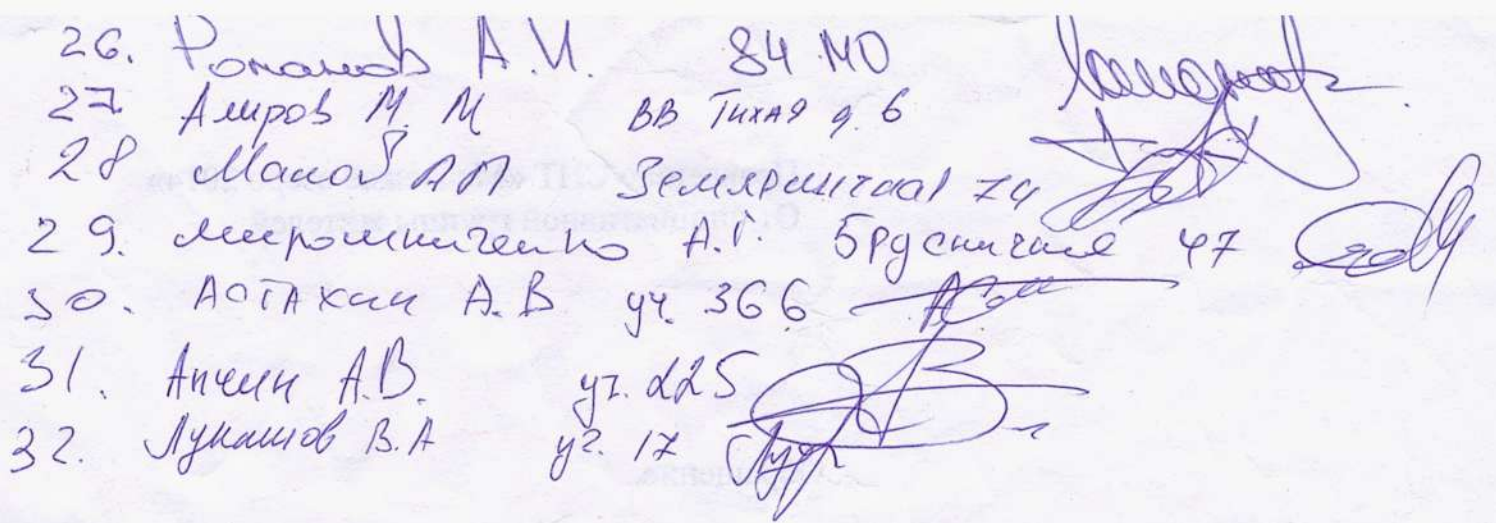 26. Романов А.И. 84 МО
27 Амиров М М ВВ Тихая д. 6
28 Манов Земляничная
29. Мирошниченко А.Г. Брусничная 47
30. Астахин А.В уч. 366
31. Анчин А.В. уч. 225
32. Лукашов В.А уч. 17